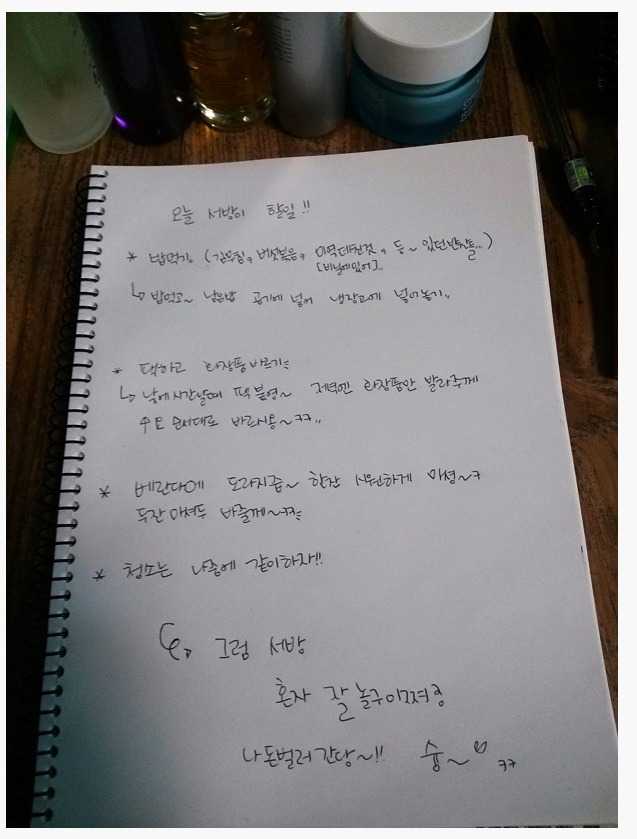 오늘 서방이 할일!!
* 밥먹기 (김무침, 버섯볶음, 미역데친것, 등~ 있던반찬들..)
[비닐에있어]..
↳ 밥먹고~ 남은밥 공기에 넣어 냉장고에 넣어놓기..
* 팩하고 화장품바르기;;
↳ 낮에시간날때 팩붙영~ 저녁엔 화장품만 발라주게
수트 순서대로 바르시용~ㅋㅋ..
* 베란다에 도라지즙~ 한잔 시원하게 마셩~ㅋ
두잔마셔두 바줄께~ㅋㅋ
* 청소는 나중에 같이하자!!
그럼 서방
혼자 잘놀구이쪄용
나돈벌러간당~!! 슝~ ㅋㅋ